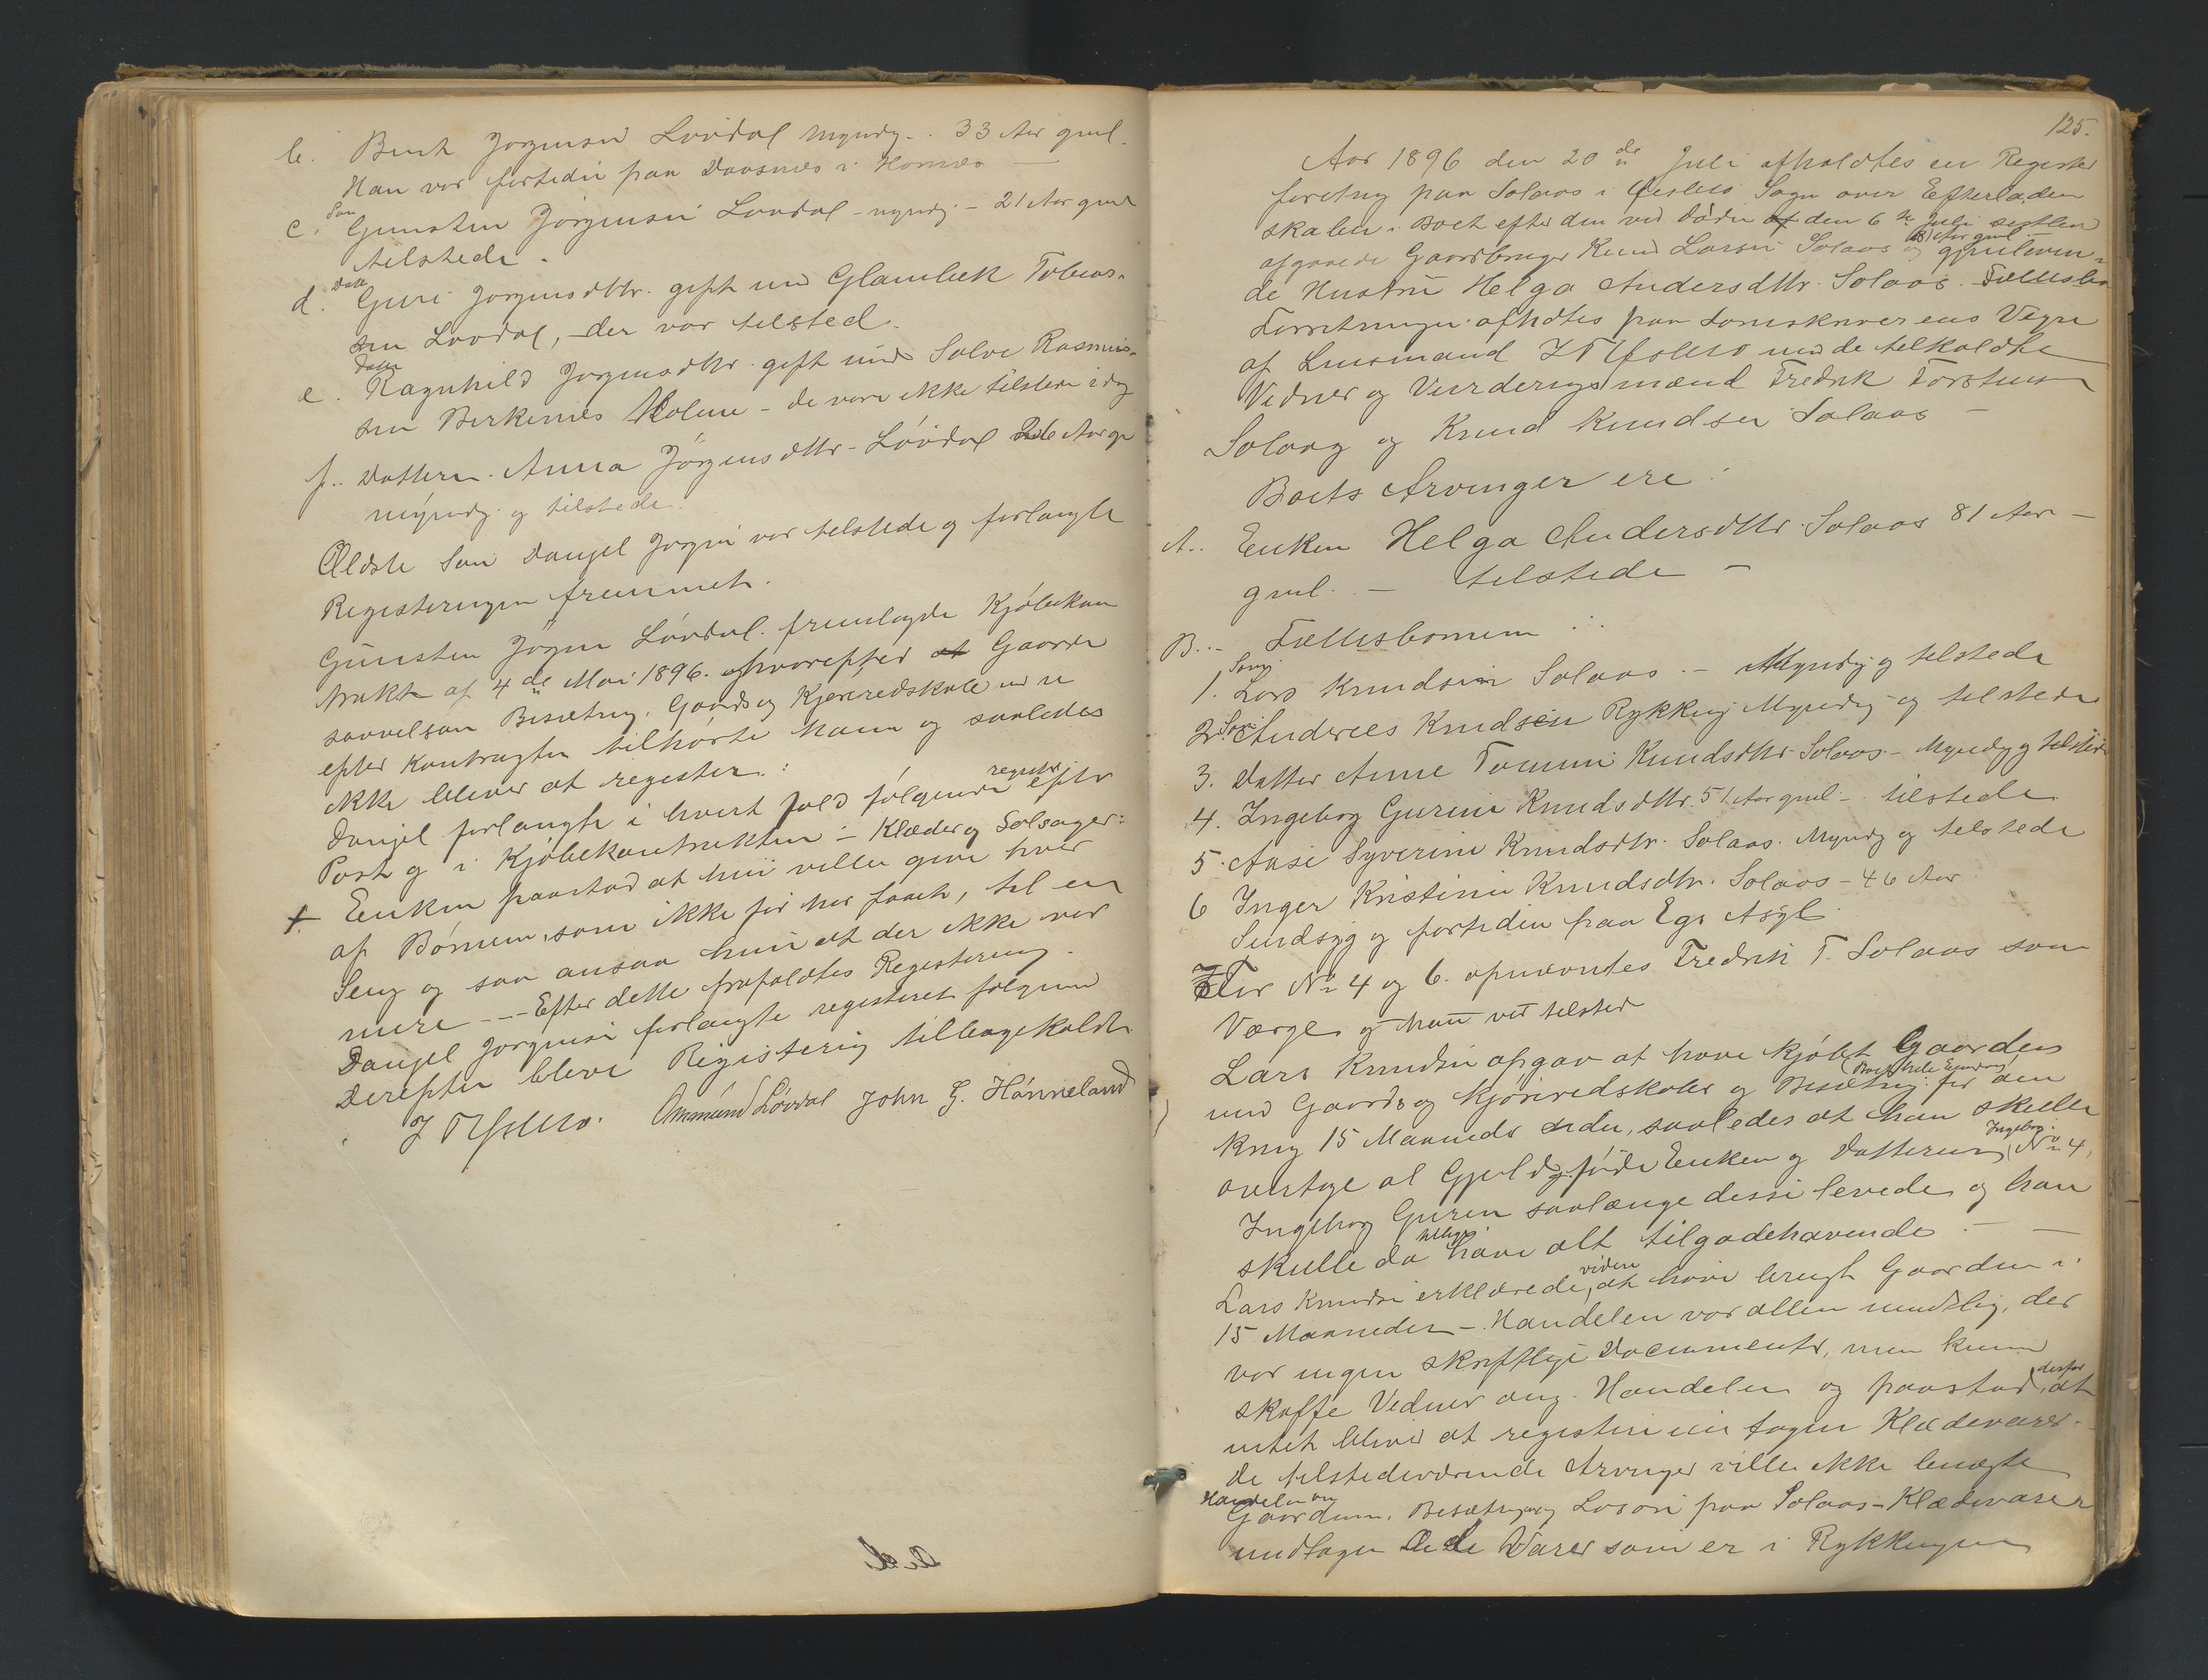 b. Bent Jørgensen Løvdal myndig - 33 Aar gml.
Han var fortiden paa Daasnes i Hornes —
c. Søn Gunsten Jørgensen Løvdal - myndig - 21 Aar gml
tilstede.
d. Datter Guri Jørgensdttr. gift med Glambek Tobias-
sen Løvdal, - der var tilsted.
e. Datter Ragnhild Jørgensdttr. gift med Salve Rasmus-
sen Birkenes Holme - de vare ikke tilstede idag
f. Datteren Anna Jørgensdttr - Løvdal 26 Aar gl
myndig og tilstede.
Ældste Søn Danjel Jørgen var tilstede og forlangte
Registeringen fremmet.
Gunsten Jørgen Løvdal fremlagde Kjøbekon
trakt af 4de Mai 1896. hvorefter at Gaarden
saavelsom Besætning, Gaards og Kjøreredskab
efter Kontragten tilhørte ham og saaledes
ikke bliver at register:
Danjel forlangte i hvert fald følgende registr efter
Post g i Kjøbekontrakten - Klæder og Sølsager:
+ Enken paastod at hun ville give hver
af Børnene, som ikke før har faaet, til en
Seng og saa ansaa hun at der ikke var
mere -- Efter dette frafaldtes Registering.
Danjel Jørgensen forlangte registeret følgende
Derefter bleve Registering tilbagekaldt.
Ommund Løvdal John G. Hønneland
125.
Aar 1896 den 20de Juli afholdtes en Register
foretning paa Solaas i Sogn over Efterladen
skaben i Boet efter den ved døden af den 6te Juli
afgaaede Gaardbruger Knud Larsen Solaas 81 Aar gml og gjenleven-
de Hustru Helga Andersdttr. Solaas. Fællesbo
Forretningen afholdtes paa Sorenskriverens Vegne
af Lensmand med de tilkaldte
Vidner og Vurderingsmænd Fredrik Torstensen
Solaas og Knud Knudsen Solaas —
Boets Arvinger ere:
A. Enken Helga Andersdttr. Solaas 81 Aar —
gml. — tilstede —
B. - Fællesbørnene:
1. Søn Lars Knudsen Solaas - Myndig og tilstede
2. Søn Anderes Knudsen Rykking Myndig og tilstede
3. Datter Anne Tomine Knudsdttr Solaas - Myndig og tilstede
4. Ingeborg Gurine Knudsdttr. 51 Aar gml - tilstede
5. Aase Syverine Knudsdtr. Solaas. Myndig og tilstede
6 Inger Kristine Knudsdtr. Solaas - 46 Aar.
Sindsyg og fortiden paa Egs Asyl
For No 4 og 6. opnævntes Fredrik T. Solaas som
Værge og han var tilsted
Lars Knudsen opgav at have kjøbt Gaarden
med Gaards og Kjøreredskaber og Besætning for om
kring 15 Maaneder siden, saaledes at han skulle
overtage al Gjeld og føde Enken og Datteren Ingeborg No 4,
Ingeborg Gurine saalænge disse levede og han
skulle da have alt tilgodehavende. —
Lars Knudsen erklærede videre, at have brugt Gaarden i
15 Maaneder - Handelen var allen mundtlig, der
var ingen skriftlige Documenter, men kunne
skaffe Vidner ang. Handelen og paastod derfor at
intet bliver at registere undtagen Klædevarer.
De tilstedeværende Arvinger ville ikke benægte
Handelen om Gaarden, Besætning og Løsøre paa Solaas - Klædevarer
undtagen de Varer som er i Rykkingen